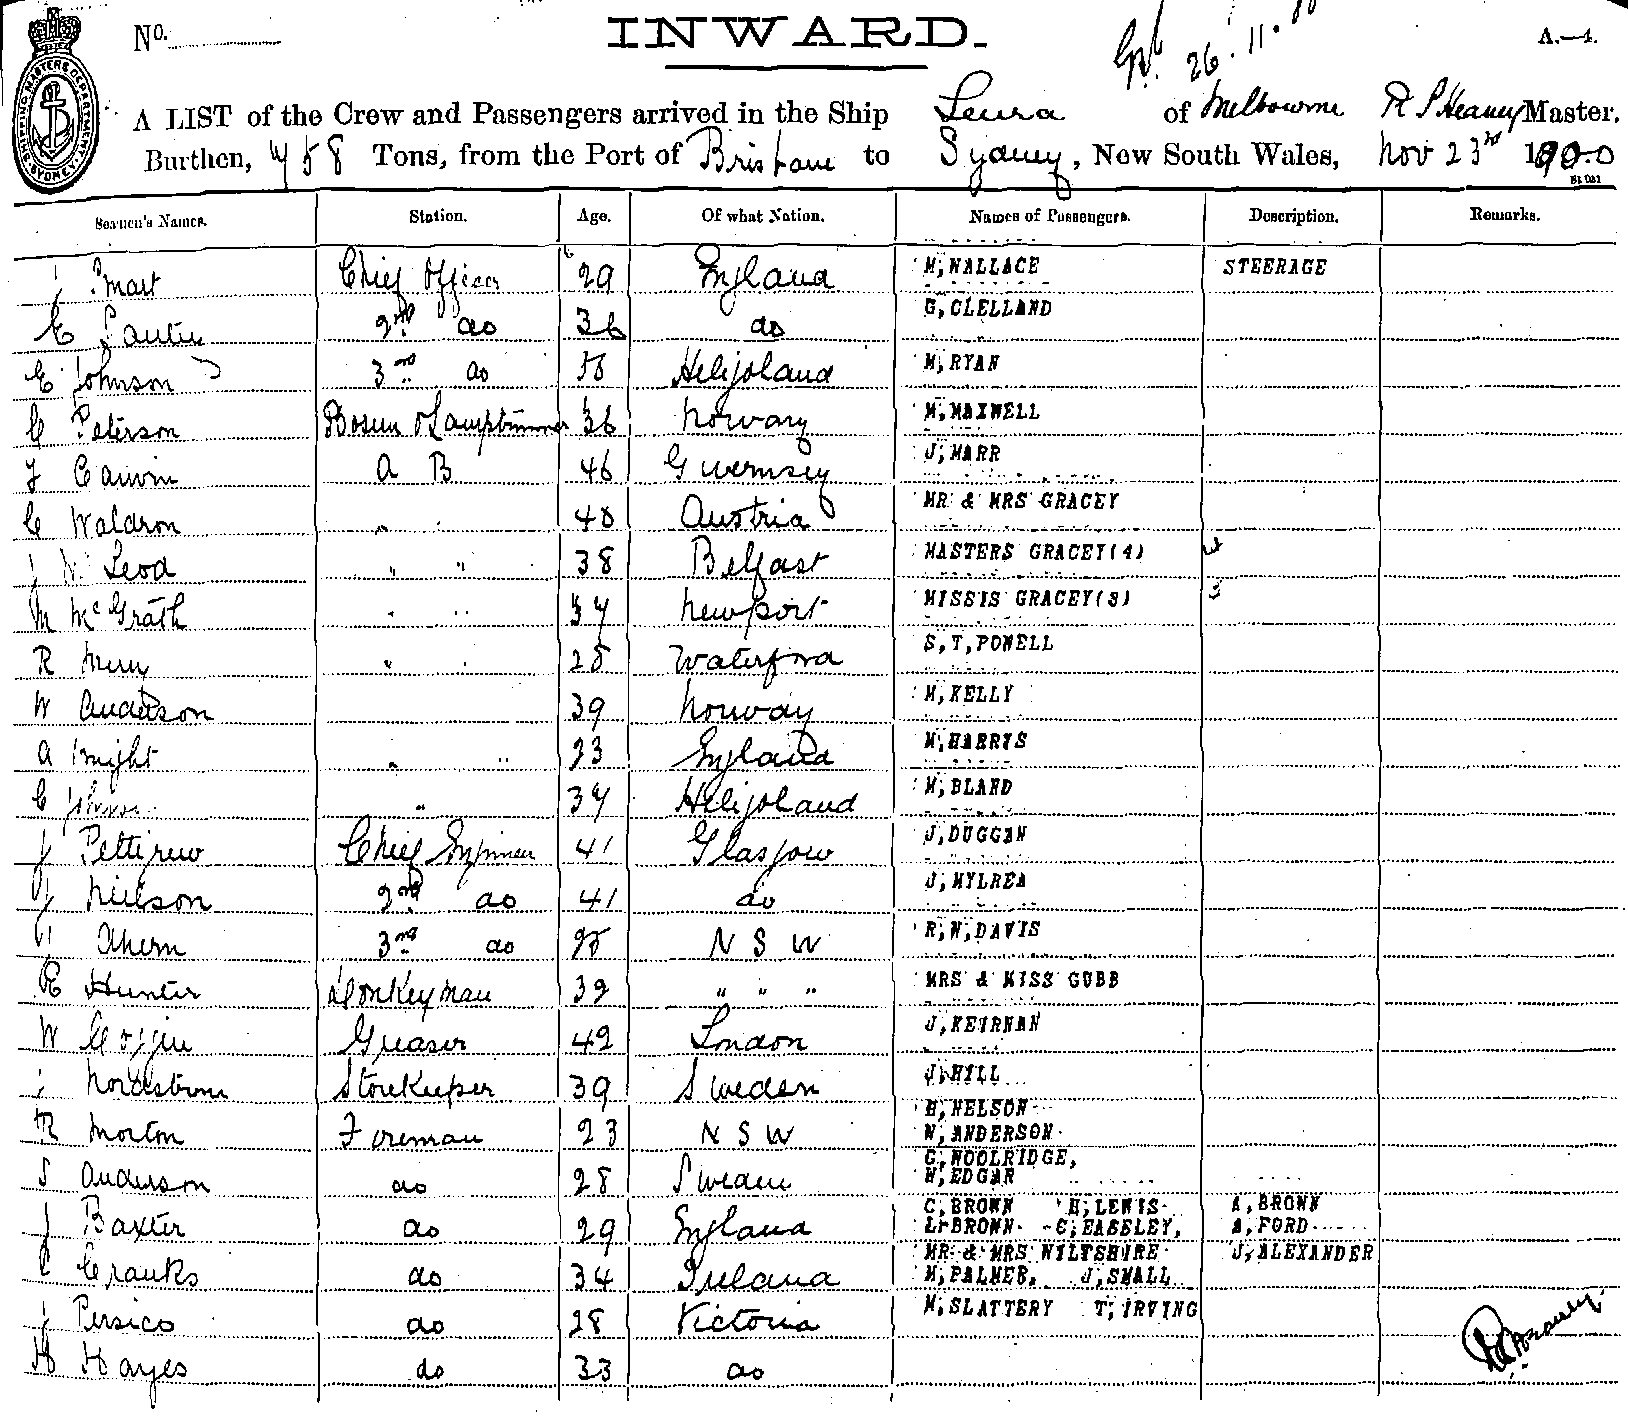 No.
INWARD.
26.11.
A.—4.
SHIPPING MASTERS DEPARTMENT SYDNEY
A LIST of the Crew and Passengers arrived in the Ship Leura of Melbourne R S Heaney Master.
Burthen, Tons, from the Port of Brisbane to Sydney, New South Wales, Nov 23rd 1900
Seamen's Names. Station. Age. Of what Nation. Names of Passengers. Description. Remarks.
Smart Chief Officer 29 England W, WALLACE STEERAGE
E 2nd do 36 do G, CLELLAND
E Johnson 3rd do Heligoland M, RYAN
C Peterson Bosun & Lamptrimmer 36 Norway M, MAXWELL
A B 46 Guernsey J, MARR
C Waldron " " Austria MR & MRS GRACEY
J Mc Leod " " 38 Belfast MASTERS GRACEY(4) 4
M McGrath " " 37 Newport MISSIS GRACEY(3) 3
R " " Waterford S, T, POWELL
W Anderson 39 Norway M, KELLY
A " " 33 England W, HARRIS
C Johnson " 37 Heligoland W, BLAND
J Pettigrew Chief Engineer 41 Glasgow J, DUGGAN
J Neilson 2nd do 41 do J, MYLREA
Ahern 3rd do N S W R, W, DAVIS
E Hunter Donkeyman 39 " " " MRS & MISS GUBB
W Greaser 42 London J, KEIRNAN
Nordstrom Storekeeper 39 Sweden J, HILL
H, NELSON
R Morton Foreman 23 N S W W, ANDERSON
G, WOOLRIDGE,
S Anderson do 28 Sweden W, EDGAR
C, BROWN H, LEWIS A, BROWN
J Baxter do 29 England L, BROWN C, EASELEY, A, FORD
MR & MRS WILTSHIRE J, ALEXANDER
C Cranks do 34 Ireland M, PALMER, J, SMALL
J Persico do 28 Victoria M, SLATTERY T, IRVING
H Hayes do 33 do